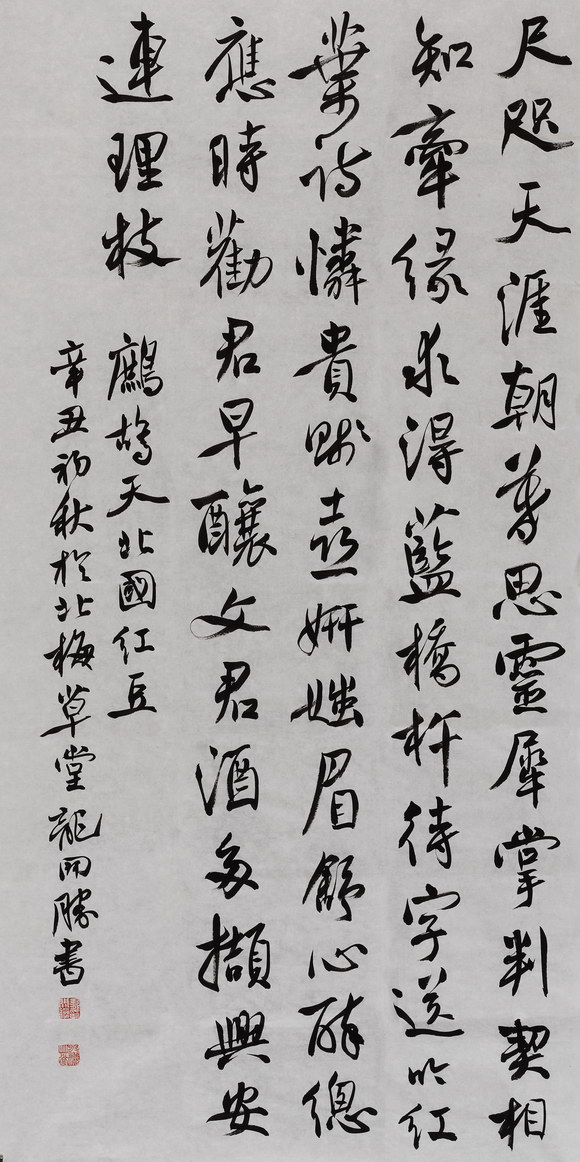 尺咫天涯朝暮思靈犀掌判契相
知牽緣求得藍橋杵待字送吟紅
葉詩憐貴賤妍媸眉舒心醉總
應時勸君早釀文君酒多擷興安
連理枝
鷓鴣天北國紅豆
辛丑初秋於北梅草堂龍開勝書